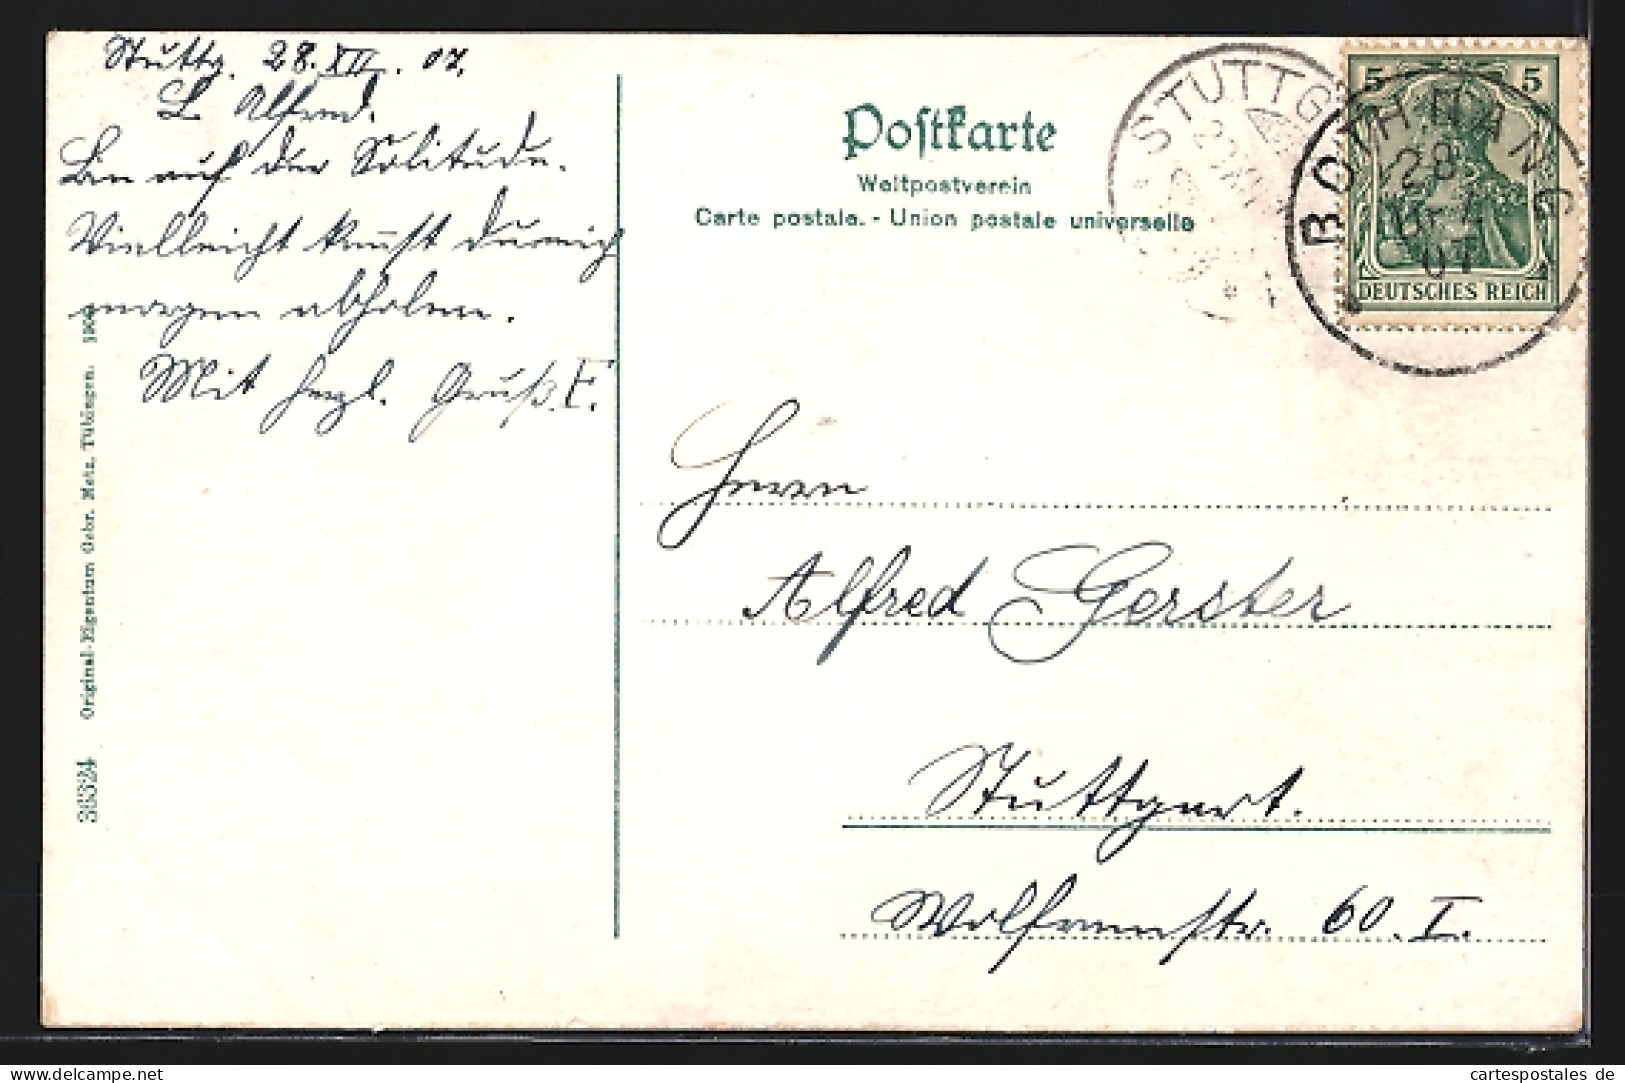 Stuttg. 28.XII.07.
L. Alfred.
Bin auf der Solitude.
Vielleicht kannst du mich
morgen abholen.
Mit herzl. Gruß. F.
Postkarte
Weltpostverein
Carte postale. - Union postale universelle
STUTTG
BOTHNANG
28
DEZ
07
5 5
DEUTSCHES REICH
Herrn
Alfred Gerster
Stuttgart.
Wolframstr. 60. I.
38324 Original-Eigentum Gebr. Metz, Tübingen.
cartespostales de
www.delcampe.net